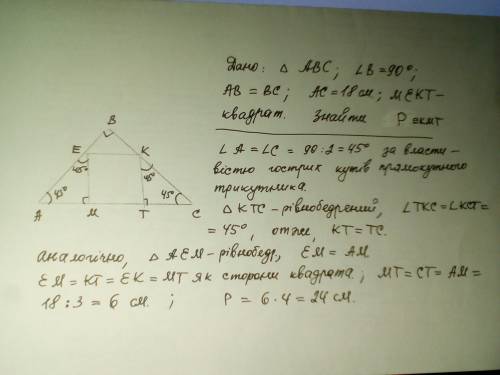 Дано: △ ABC; ∠B = 90°;
AB = BC; AC = 18 см; MEKT –
квадрат. Знайти P екмт
B
E
K
45°
45°
45°
45°
A
M
T
C
∠A = ∠C = 90 : 2 = 45° за власти-
вістю гострих кутів прямокутного
трикутника.
△ KTC – рівнобедрений, ∠TKC = ∠KCT =
= 45°, отже, KT = TC.
Аналогічно, △ AEM – рівнобедр, EM = AM.
EM = KT = EK = MT як сторони квадрата; MT = CT = AM =
18 : 3 = 6 см. ; P = 6 · 4 = 24 см.